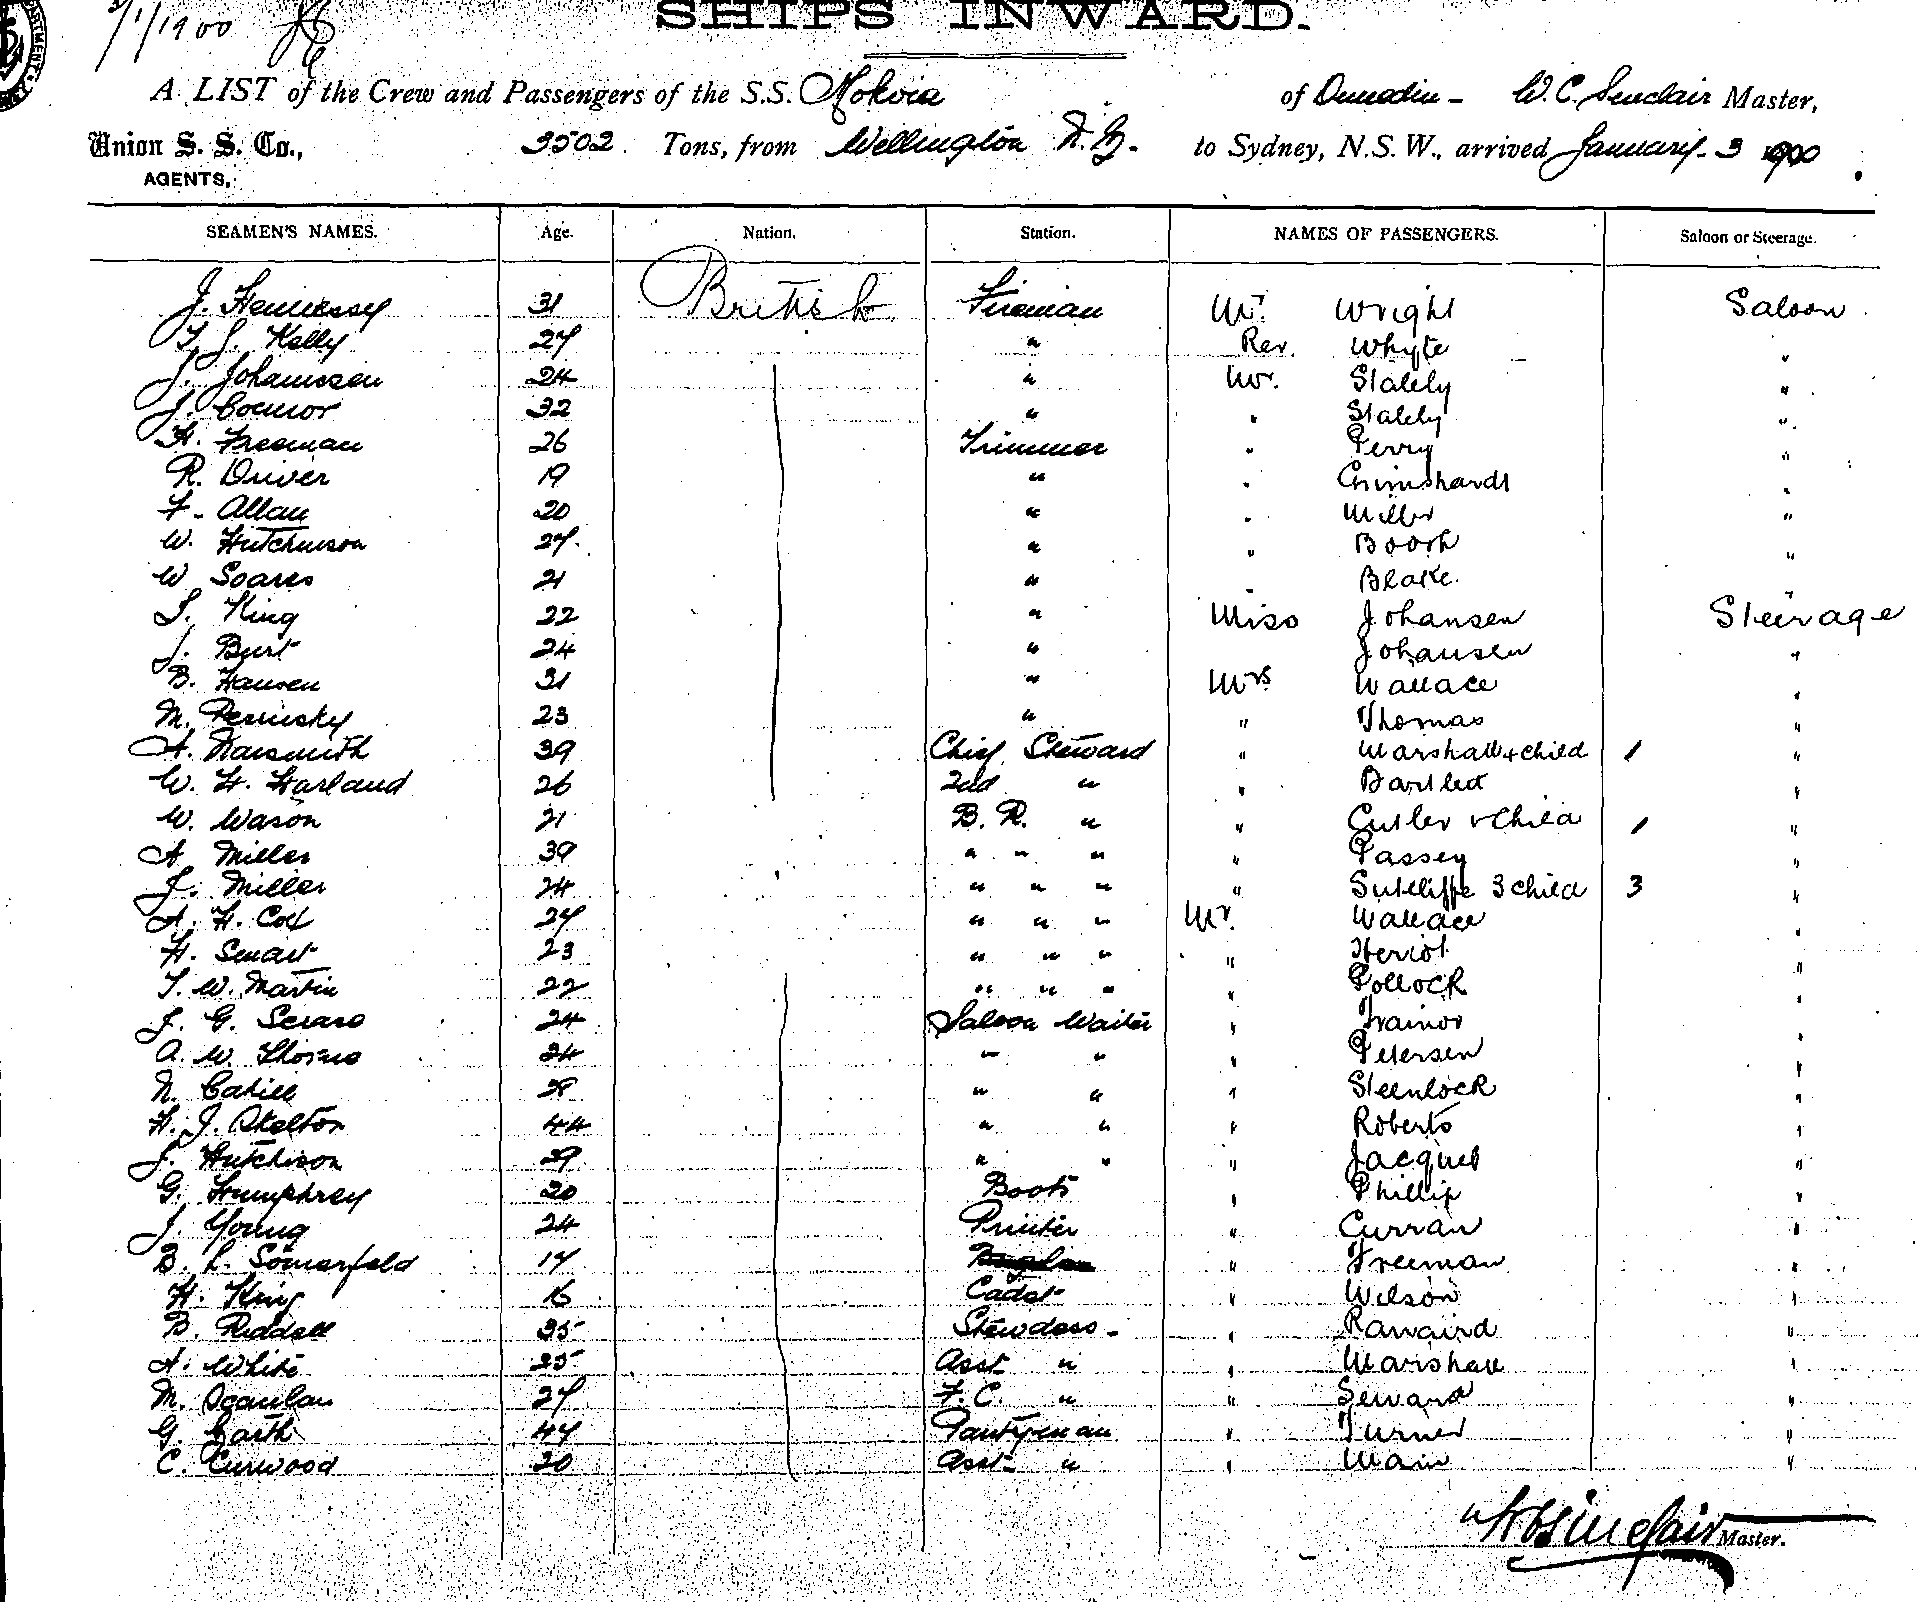 3/1/1900
SHIPS INWARD.
A LIST of the Crew and Passengers of the S.S. Mokoia of Dunedin - W. C. Sinclair Master,
Union S. S. Co., 3502 Tons, from Wellington N.Z. to Sydney, N.S.W., arrived January 3 1900
AGENTS,
SEAMEN'S NAMES. Age. Nation. Station. NAMES OF PASSENGERS. Saloon or Steerage.
J. Hennessy 31 British Fireman Mr. Wright Saloon
T. J. Kelly 27 " Rev. Whyte "
J. Johannsen 24 " Mr. Stalely "
J. Connor 32 " " Stalely "
H. Freeman 26 Trimmer " Perry "
R. Driver 19 " "  "
F. Allan 20 " " Miller "
W. Hutchinson 27 " " Booth "
W Soares 21 " " Blake "
S. King 22 " Miss Johansen Steerage
J. Burt 24 " Johansen "
B. Hansen 31 " Mrs Wallace "
M. 23 " " Thomas "
A. Naismith 39 Chief Steward " Marshall + child 1 "
W. H. Harland 26 2nd " " Bartlett "
W. Wason 21 B. R. " " Cutler + Child 1 "
A. Miller 39 " " " " Passey "
J. Miller 24 " " " " Sutcliffe 3 child 3 "
A. H. Cox 27 " " " Mr. Wallace "
H. Smart 23 " " " " Heriot "
T. W. Martin 22 " " " " Pollock "
J. G. 24 Saloon Waiter " Trainor "
A. W. 24 " " " Petersen "
N. Cahill 28 " " " Steenlock "
H. J. Skelton 44 " " " Roberts "
J. Hutchison 29 " " " Jacques "
G. Humphrey 20 Boots " Phillip "
J. Young 24 Printer " Curran "
B. L. Somerfeld 17 " Freeman "
H. King 16 Cadet " Wilson "
B. Riddell 35 Stewdess - " "
A. White 25 Asst " " Marshall "
M. Scanlan 27 F. C. " " Seward "
G. Garth 47 Pantryman " Turner "
C. Curwood 20 Asst " " Main "
Sinclair Master.